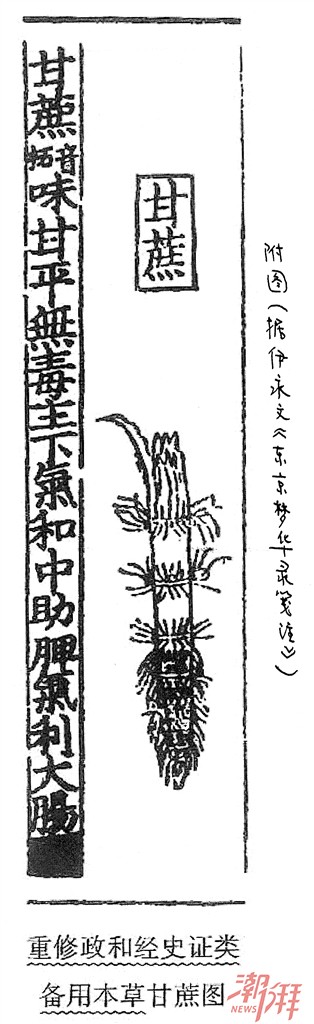 附图(据伊永文《东京梦华录笺注》)
甘蔗
甘蔗音柘味甘平無毒主下氣和中助脾氣利大腸
重修政和经史证类
备用本草甘蔗图
潮湃
NEWS